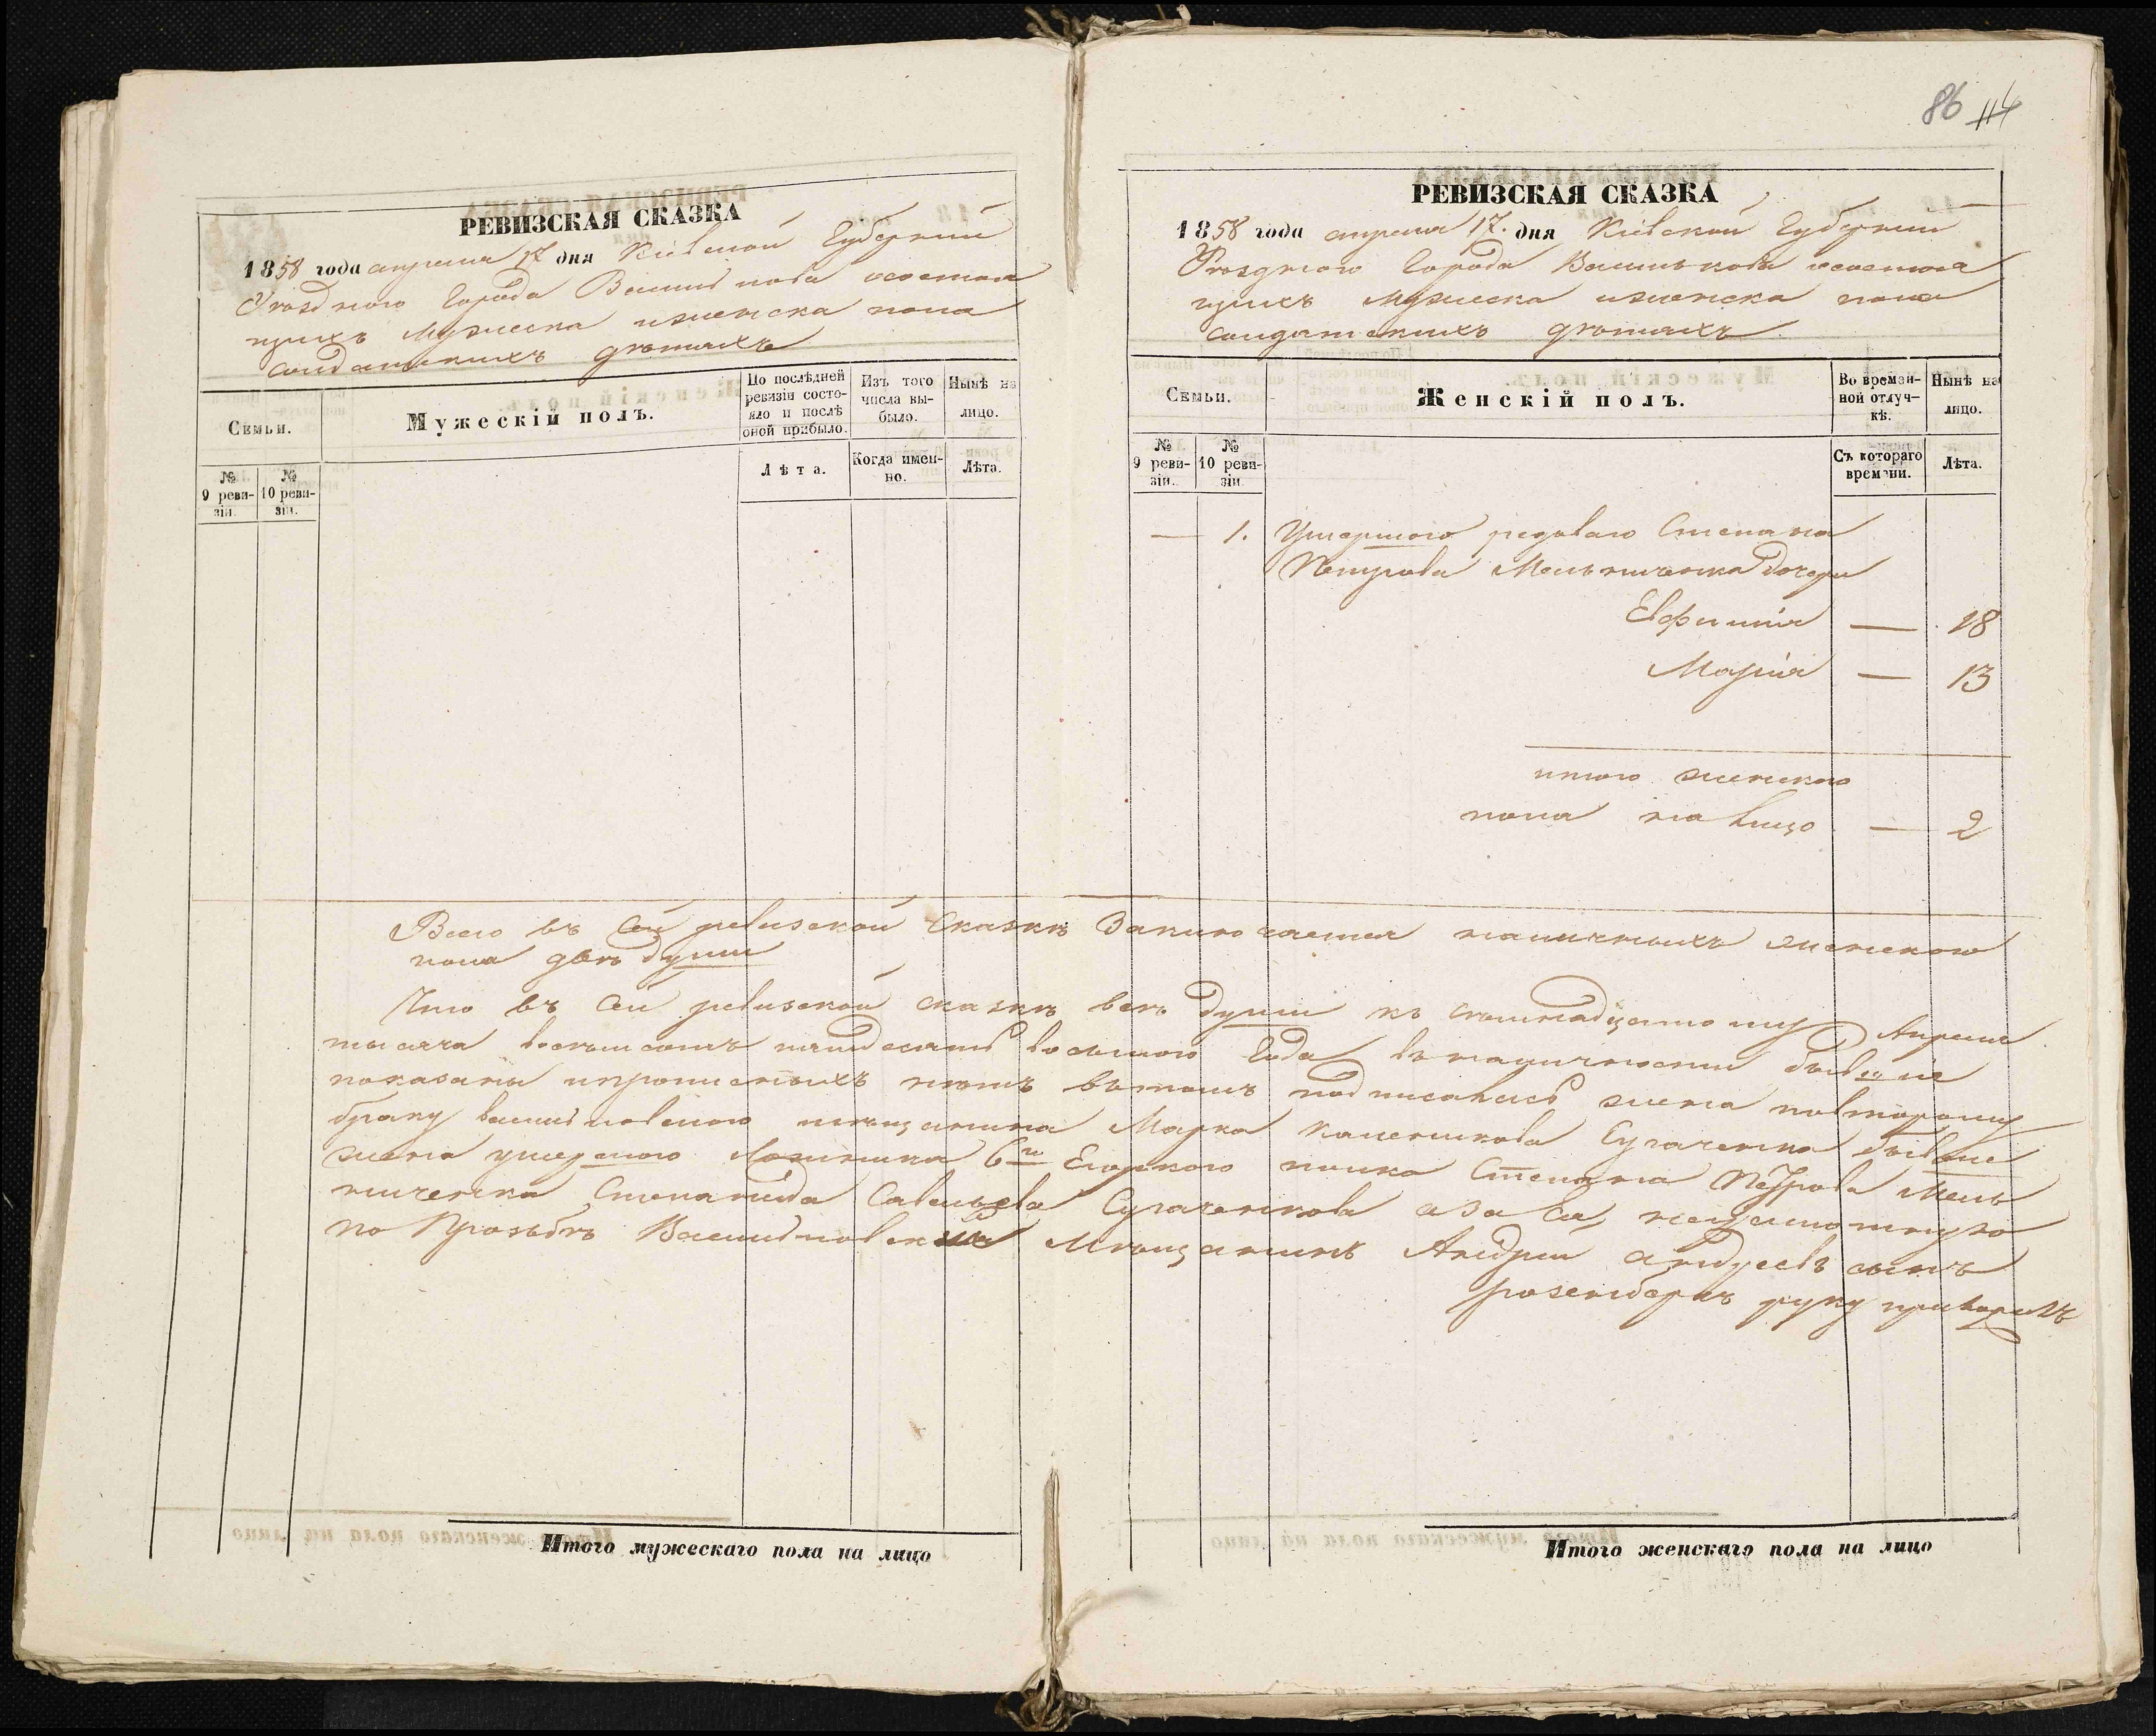 86 114
РЕВИЗСКАЯ СКАЗКА
1858 года апреля 17 дня Кіевской Губерніи
Уѣзднаго Города Василькова осостоя
щихъ мужеска иженска пола
солдатскихъ дѣтяхъ
Семьи.
Мужескій полъ.
По послѣдней ревизіи состояло и послѣ оной прибыло.
Изъ того числа выбыло.
Нынѣ на лицо.
№ 9 ревизіи.
№ 10 ревизіи.
Лѣта.
Когда именно.
Лѣта.
РЕВИЗСКАЯ СКАЗКА
1858 года апреля 17. дня Кіевской Губерніи
Уѣзднаго Города Василькова осостоя
щихъ мужеска иженска пола
солдатскихъ дѣтяхъ
Семьи.
Женскій полъ.
Во временной отлучкѣ.
Нынѣ на лицо.
№ 9 ревизіи.
№ 10 ревизіи.
Съ котораго времени.
Лѣта.
— 1. Умершого редоваго Степана
Петрова Мельниченка дочери
Евфимія — 18
Марія — 13
итого женского
пола на лицо — 2
Всего въ сей ревизской сказкѣ Заключается наличныхъ женского
пола двѣ души
Что въ сей ревизской сказкѣ всѣ души къ семнадцатому Апреля
тысяча восемьсотъ пятдесятъ восьмого Года въ наличности бывшие
показаны ипрописныхъ нѣтъ вътомъ подписалась жена повторому
браку васильковского мещанина Марка Сугаченка бывше
жена умершого 6го Егорского полка Степана Петрова Мель
ниченка Степанида Савельева Сугаченкова аза ея неграмотную
по Прозьбѣ Васильковский Мѣщанинъ Андрей андреевъ сынъ
розенбергъ руку приложилъ
Итого мужескаго пола на лицо
Итого женскаго пола на лицо